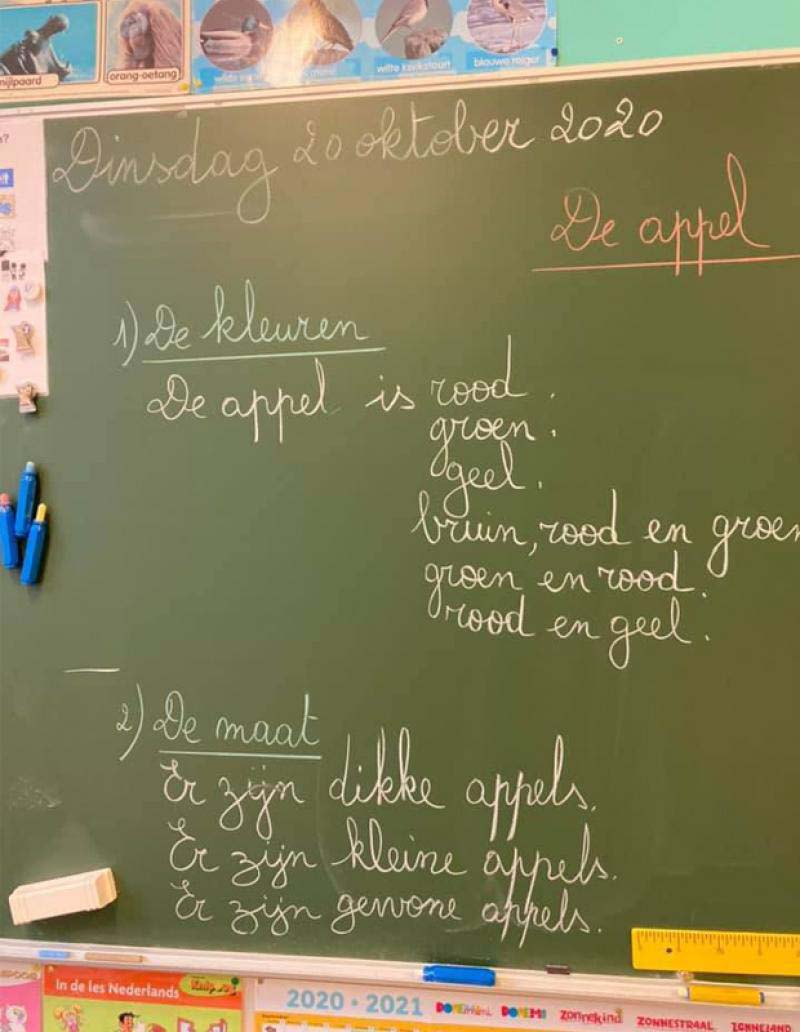 nijlpaard
orang-oetang
witte kwikstaart
blauwe reiger
Dinsdag 20 oktober 2020
De appel
1) De kleuren
De appel is rood.
groen.
geel.
bruin, rood en groen
groen en rood.
rood en geel.
2) De maat
Er zijn dikke appels.
Er zijn kleine appels.
Er zijn gewone appels.
In de les Nederlands
2020 • 2021
DOREMI
zonnekind
ZONNESTRAAL
ZONNELAND